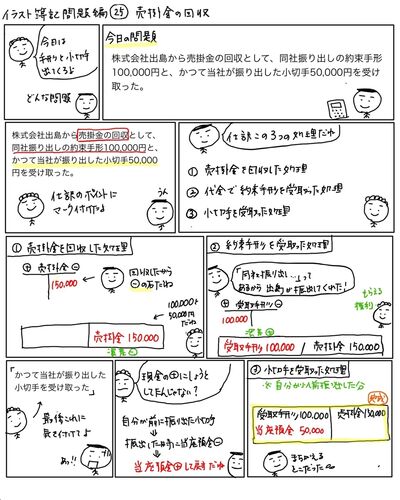 イラスト簿記問題編㉕ 売掛金の回収
今日は
手形と小切手
出てくるよ
どんな問題
今日の問題
株式会社出島から売掛金の回収として、同社振り出しの約束手形
100,000円と、かつて当社が振り出した小切手50,000円を受け
取った。
株式会社出島から売掛金の回収として、
同社振り出しの約束手形100,000円と、
かつて当社が振り出した小切手50,000
円を受け取った。
仕訳のポイントに
マークつけたよ
うん
仕訳この3つの処理だね
① 売掛金を回収した処理
② 代金で約束手形を受取った処理
③ 小切手を受取った処理
① 売掛金を回収した処理
⊕ 売掛金 ⊖
150,000
回収したから
⊖の右だね
100,000と
50,000円
だね
売掛金 150,000
資産⊖
② 約束手形を受取った処理
「同社振り出し…」って
あるから出島が振出してくれた!
⊕ 受取手形 ⊖
100,000
もらえる
権利
資産⊕
受取手形 100,000 / 売掛金 150,000
「かつて当社が振り出した
小切手を受け取った」
最後これに
気をつけてよ
あっ!!
現金の⊕にしようと
してたんじゃない?
自分が前に振り出た小切手
振出した時に当座預金⊖
当座預金⊕して戻すだね
③ 小切手を受取った処理
※自分が以前振出した分
完成
受取手形 100,000
売掛金 150,000
当座預金 50,000
まちがえる
とこだった〜